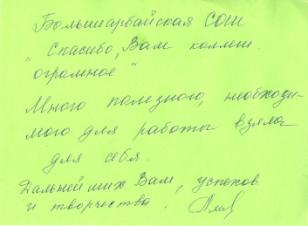 Большиарбайская СОШ
"Спасибо, Вам коллеги.
огромное"
Много полезного, необходи-
мого для работы взяла
для себя.
Дальнейших Вам, успехов
и творчества.